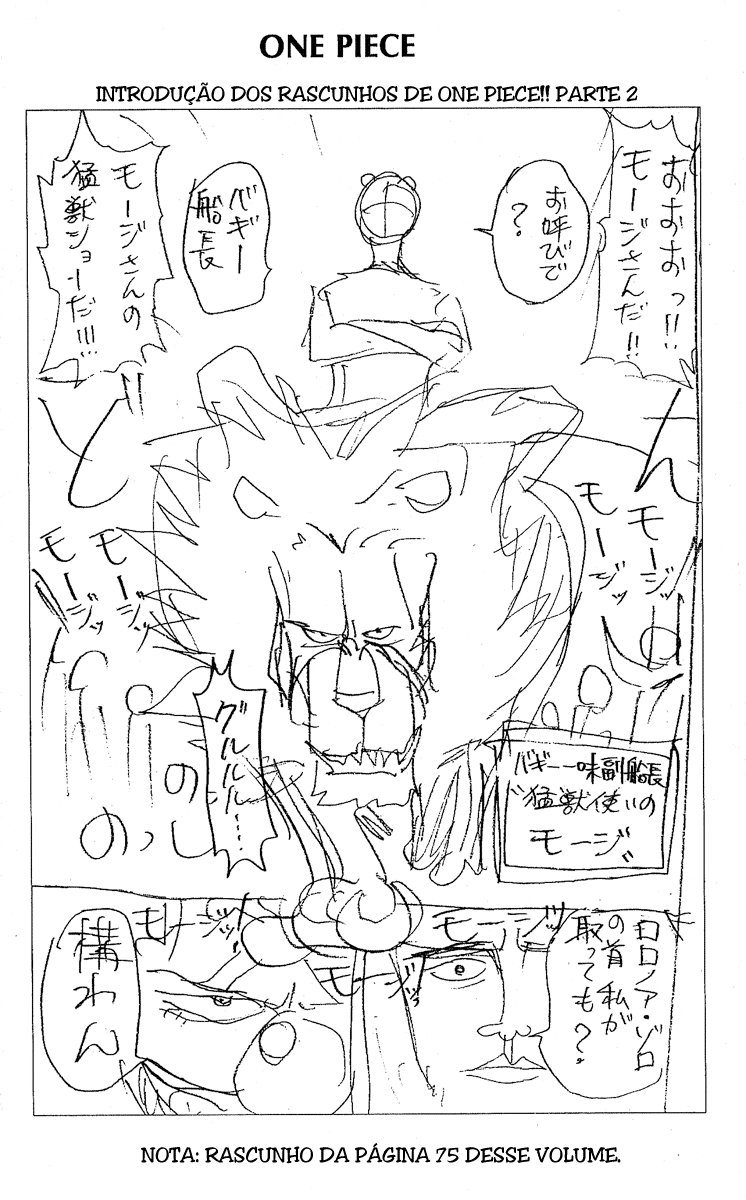 ONE PIECE
INTRODUÇÃO DOS RASCUNHOS DE ONE PIECE!! PARTE 2
おおおっ!!
モージさんだ!!
お呼びで
?
バギー
船長
モージさんの
猛獣ショーだ!!!
ん
ど
!!
モージッ
モージッ
モージッ
モージッ
グルルル…
のっし
の
バギー一味副船長
"猛獣使いの
モージ"
ロロノア・ゾロ
の首私が
取っても?
モージッ
モージッ
モージッ
構わん
NOTA: RASCUNHO DA PÁGINA 75 DESSE VOLUME.